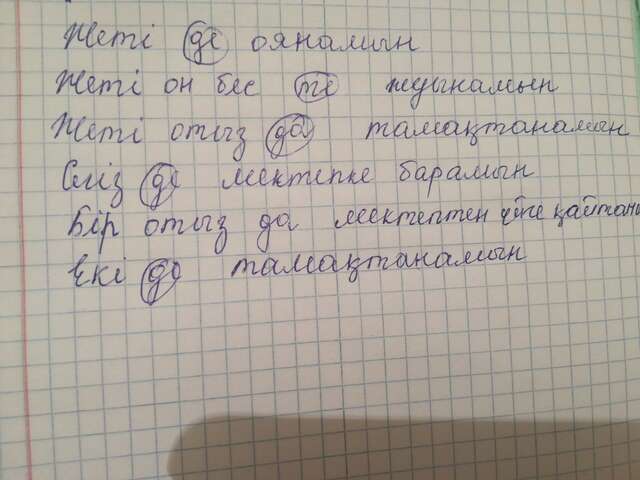 Жеті де оянамын
Жеті он бес те жуынамын
Жеті отыз да тамақтанамын
Сегіз де мектепке барамын
Бір отыз да мектептен үйге қайтам
Екі де тамақтанамын